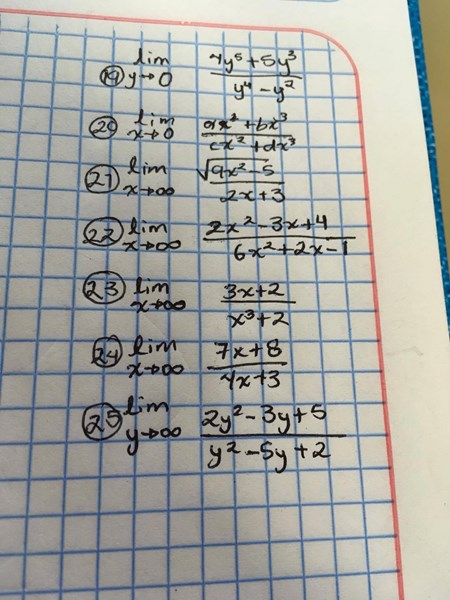 19 lim y→0 4y⁵ + 5y³ / y⁴ - y²
20 lim x→0 ax² + bx³ / cx² + dx³
21 lim x→∞ √9x² - 5 / 2x + 3
22 lim x→∞ 2x² - 3x + 4 / 6x² + 2x - 1
23 lim x→∞ 3x + 2 / x³ + 2
24 lim x→∞ 7x + 8 / 4x + 3
25 lim y→∞ 2y² - 3y + 5 / y² - 5y + 2